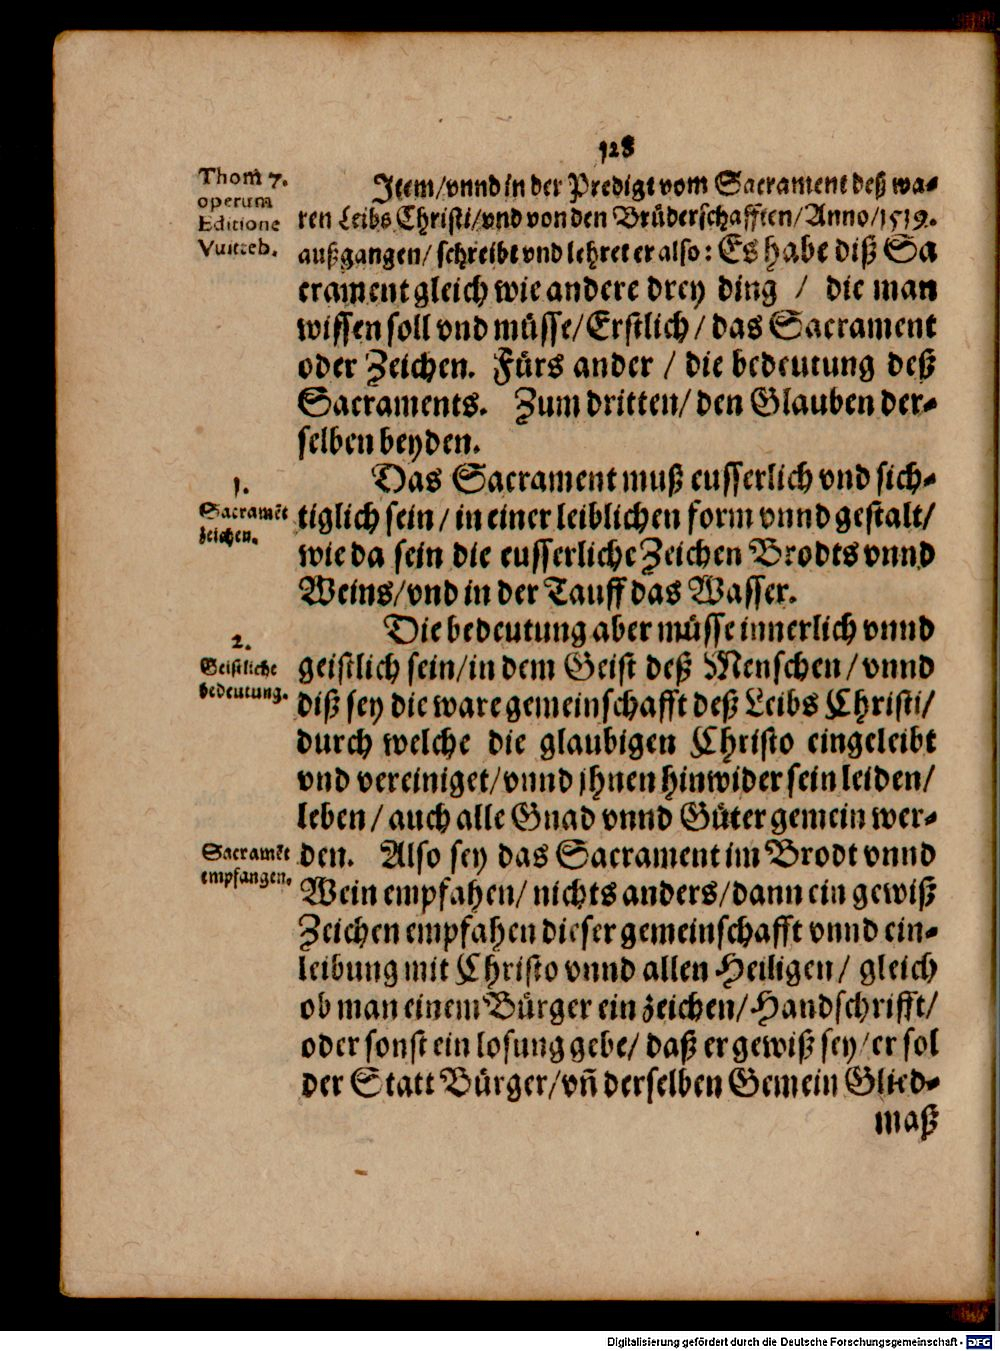 128
Thom̃ 7.
operum
Editione
Vuitteb.
Item/vnnd in der Predigt vom Sacrament deß wa-
ren Leibs Christi/vnd von den Brüderschafften/Anno/1519.
außgangen/ schreibt vnd lehret er also: Es habe diß Sa
crament gleich wie andere drey ding / die man
wissen soll vnd müsse/Erstlich/ das Sacrament
oder Zeichen. Fürs ander / die bedeutung deß
Sacraments. Zum dritten/ den Glauben der-
selben beyden.
1.
Sacramẽt
zeichen.
Das Sacrament muß eusserlich vnd sich-
tiglich sein / in einer leiblichen form vnnd gestalt/
wie da sein die eusserliche Zeichen Brodts vnnd
Weins/vnd in der Tauff das Wasser.
2.
Geistliche
bedeutung.
Die bedeutung aber müsse innerlich vnnd
geistlich sein/in dem Geist deß Menschen/vnnd
diß sey die ware gemeinschafft deß Leibs Christi/
durch welche die glaubigen Christo eingeleibt
vnd vereiniget/vnnd jhnen hinwider sein leiden/
leben/ auch alle Gnad vnnd Güter gemein wer-
Sacramẽt
empfangen.
den. Also sey das Sacrament im Brodt vnnd
Wein empfahen/ nichts anders/dann ein gewiß
Zeichen empfahen dieser gemeinschafft vnnd ein-
leibung mit Christo vnnd allen Heiligen/ gleich
ob man einem Bürger ein zeichen/Handschrifft/
oder sonst ein losung gebe/ daß er gewiß sey/er sol
der Statt Bürger/vñ derselben Gemein Glied-
maß
Digitalisierung gefördert durch die Deutsche Forschungsgemeinschaft - DFG